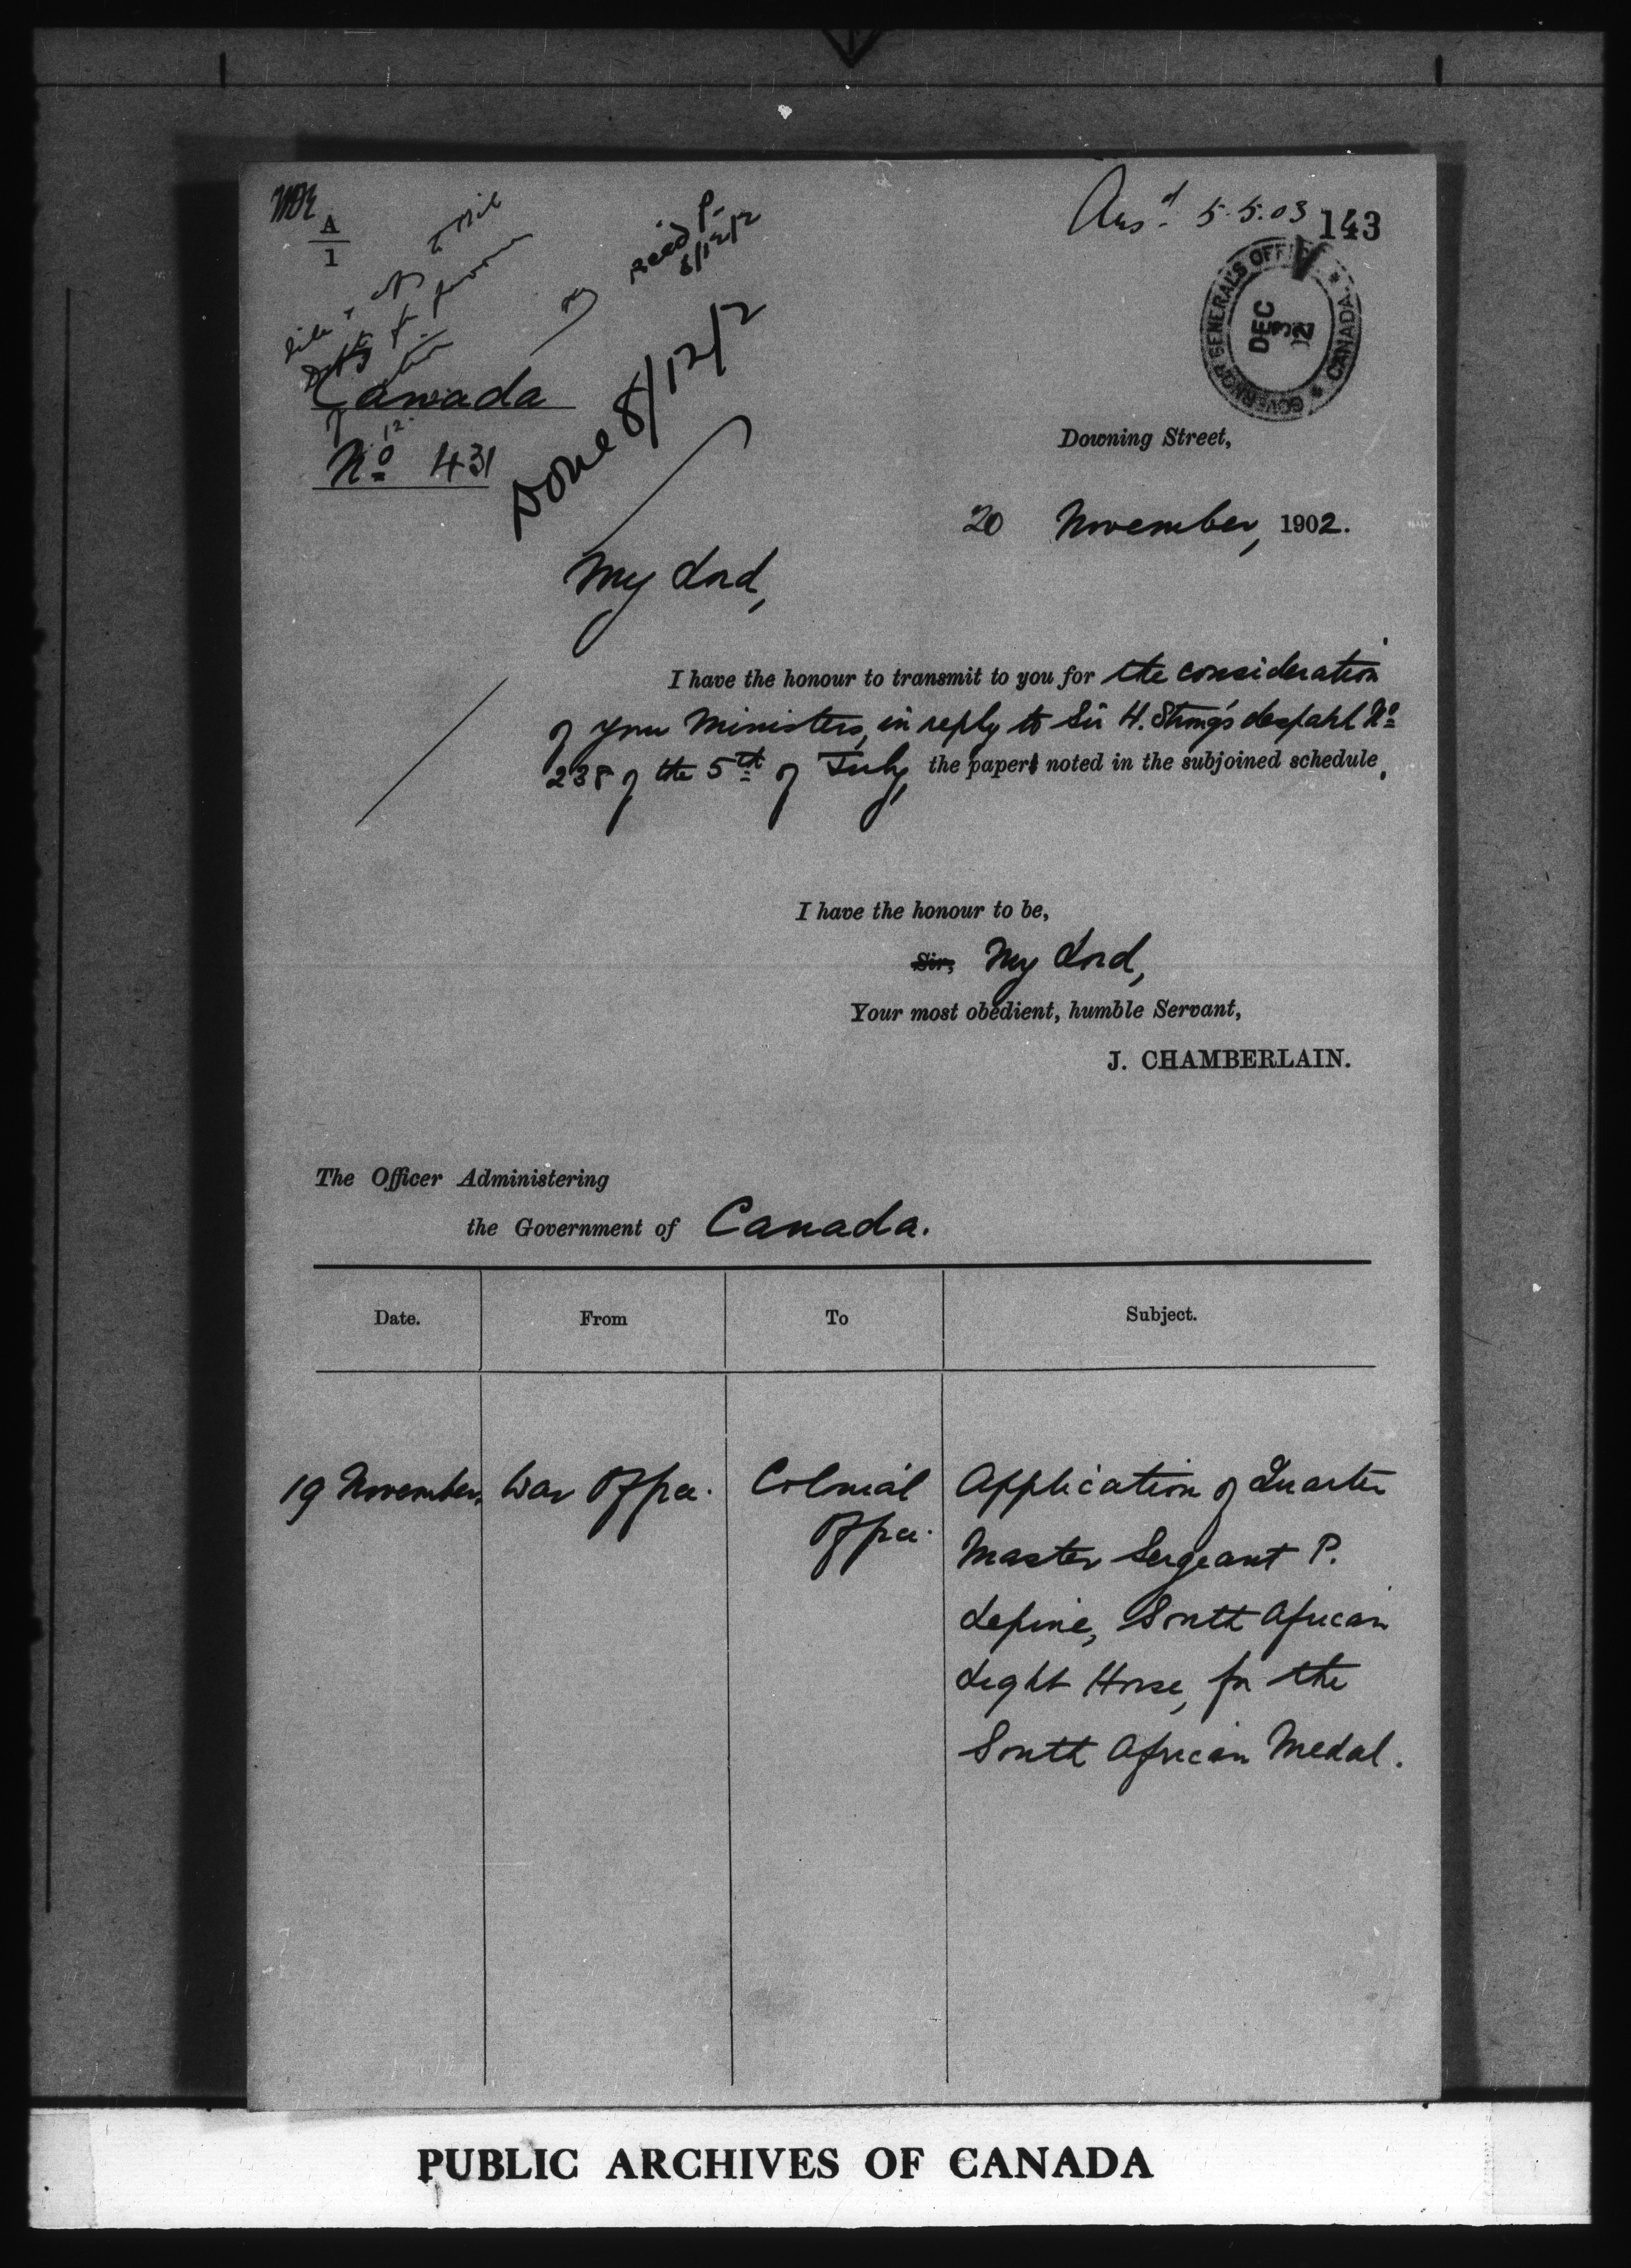 Ansd 5.5.03
143
A
1
Recd P.
8/12/2
GOVERNOR GENERAL'S OFFICE CANADA
DEC
Canada
Done 8/12/2
No 431
Downing Street,
20 November, 1902.
My Lord,
I have the honour to transmit to you for the consideration
of your Ministers, in reply to Sir H. Strong's despatch No
238 of the 5th of July, the paper noted in the subjoined schedule.
I have the honour to be,
Sir, My Lord,
Your most obedient, humble Servant,
J. CHAMBERLAIN.
The Officer Administering
the Government of Canada.
Date. From To Subject.
19 November. War Office. Colonial Application of Quarter
Office. Master Sergeant P.
Lepine, South African
Light Horse, for the
South African Medal.
PUBLIC ARCHIVES OF CANADA